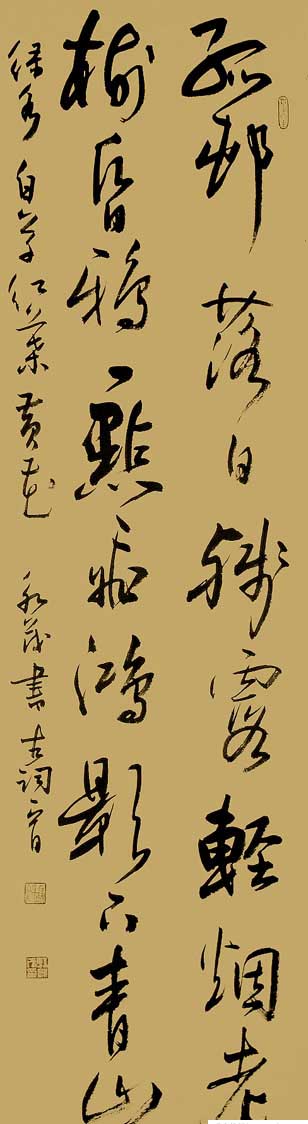 孤邨落日殘霞輕烟老
樹昏鴉一點飛鴻影下青山
綠水白草紅葉黃花 永茂書古詞一首